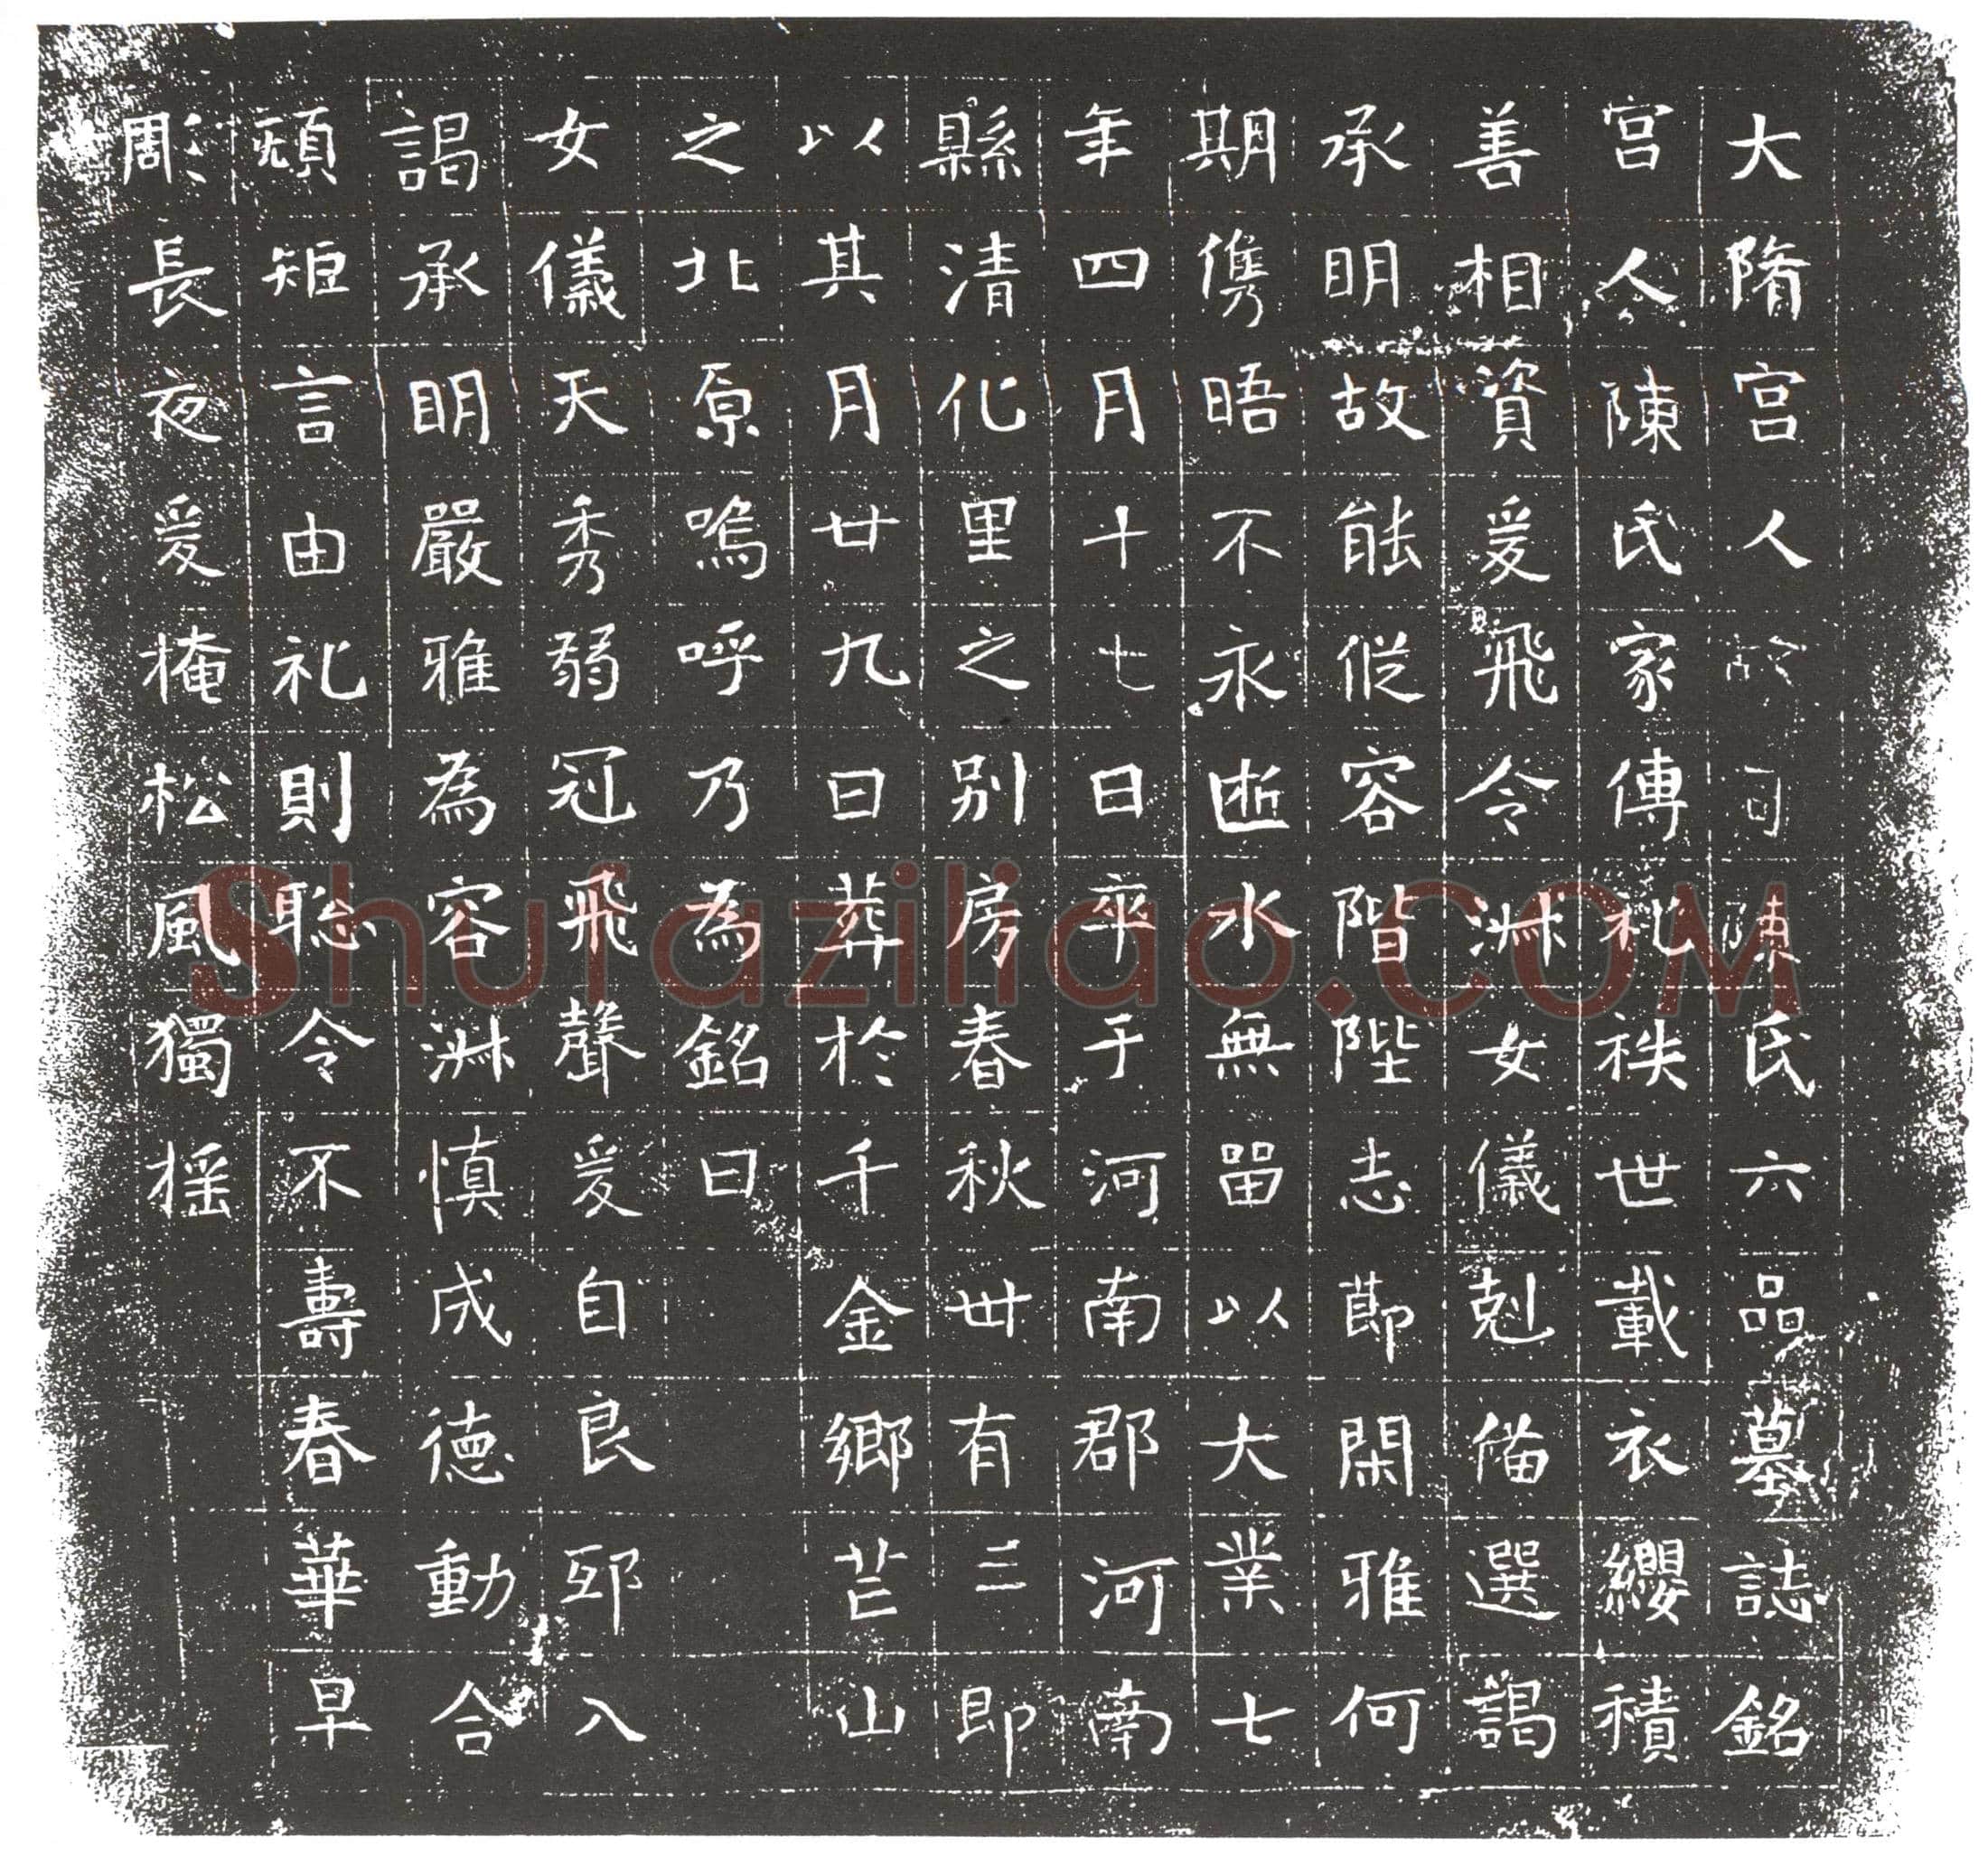 大隋宮人故司陳氏六品墓誌銘
宮人陳氏家傳礼秩世載衣纓積
善相資爰飛令淋女儀剋俻選謁
承明故能從容階陛志莭閑雅何
期儁晤不永逝水無畱以大業七
年四月十七日卒于河南郡河南
縣清化里之别房春秋卅有三即
以其月廿九日葬於千金鄉芒山
之北原嗚呼乃為銘曰
女儀天秀弱冠飛聲爰自良邪入
謁承明嚴雅為容淋慎成德動合
頑矩言由礼則聡令不壽春華早
彫長夜爰掩松風獨摇
Shufaziliao.COM